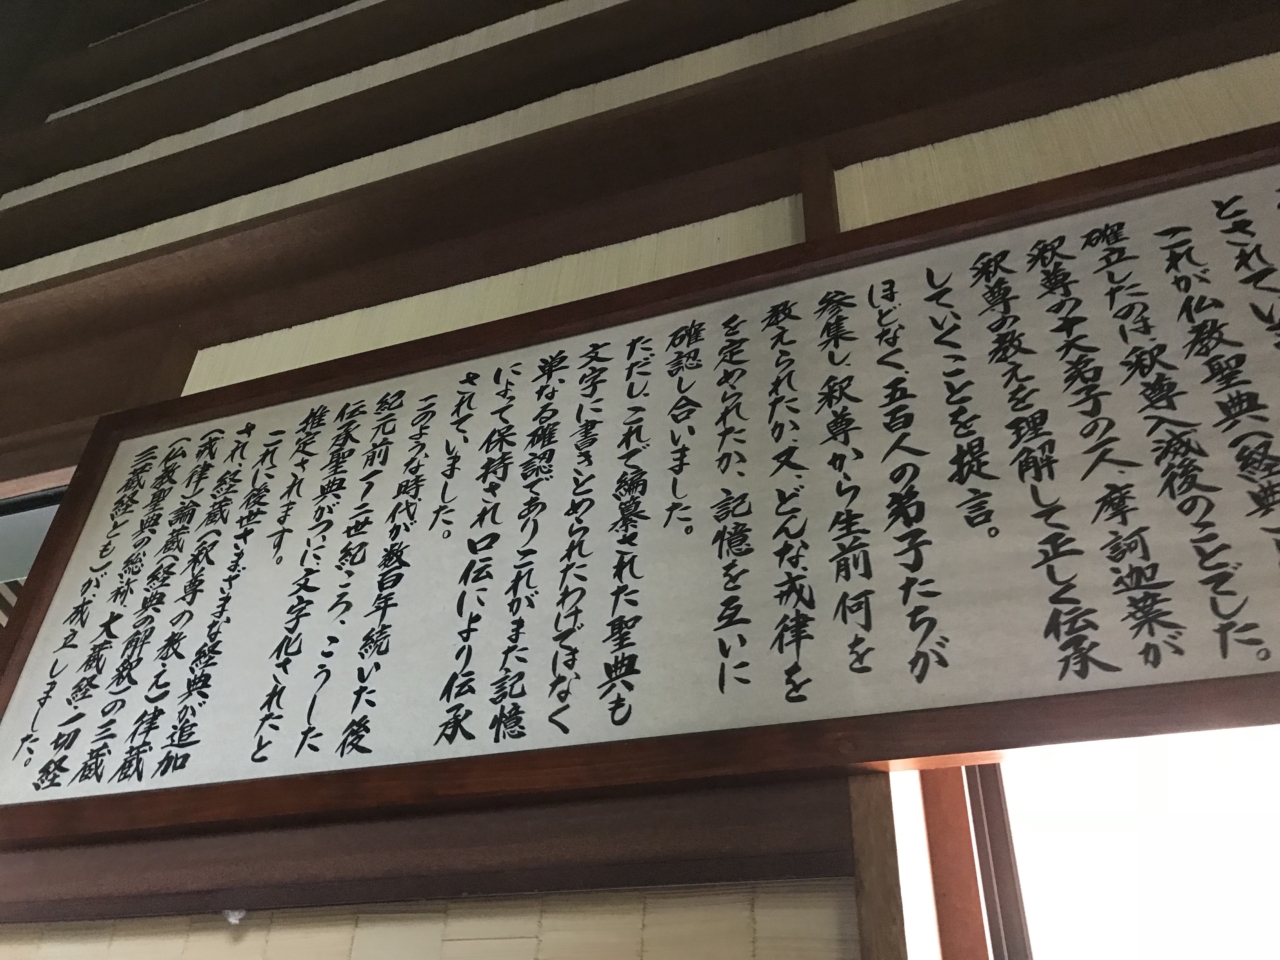 とされてい
これが仏教聖典(経典)
確立したのは、釈尊入滅後のことでした。
釈尊の十大弟子の一人、摩訶迦葉が
釈尊の教えを理解して正しく伝承
していくことを提言。
ほどなく、五百人の弟子たちが
参集し、釈尊から生前何を
教えられたか、又、どんな戒律を
を定められたか、記憶を互いに
確認し合いました。
ただし、これで編纂された聖典も
文字に書きとめられたわけではなく
単なる確認でありこれがまた記憶
によって保持され口伝により伝承
されていました。
このような時代が数百年続いた後
紀元前一〜二世紀ころ、こうした
伝承聖典がついに文字化されたと
推定されます。
これに後世さまざまな経典が追加
され、経蔵(釈尊の教え)律蔵
(戒律)論蔵(経典の解釈)の三蔵
(仏教聖典の総称、大蔵経・一切経
三蔵経とも)が、成立しました。